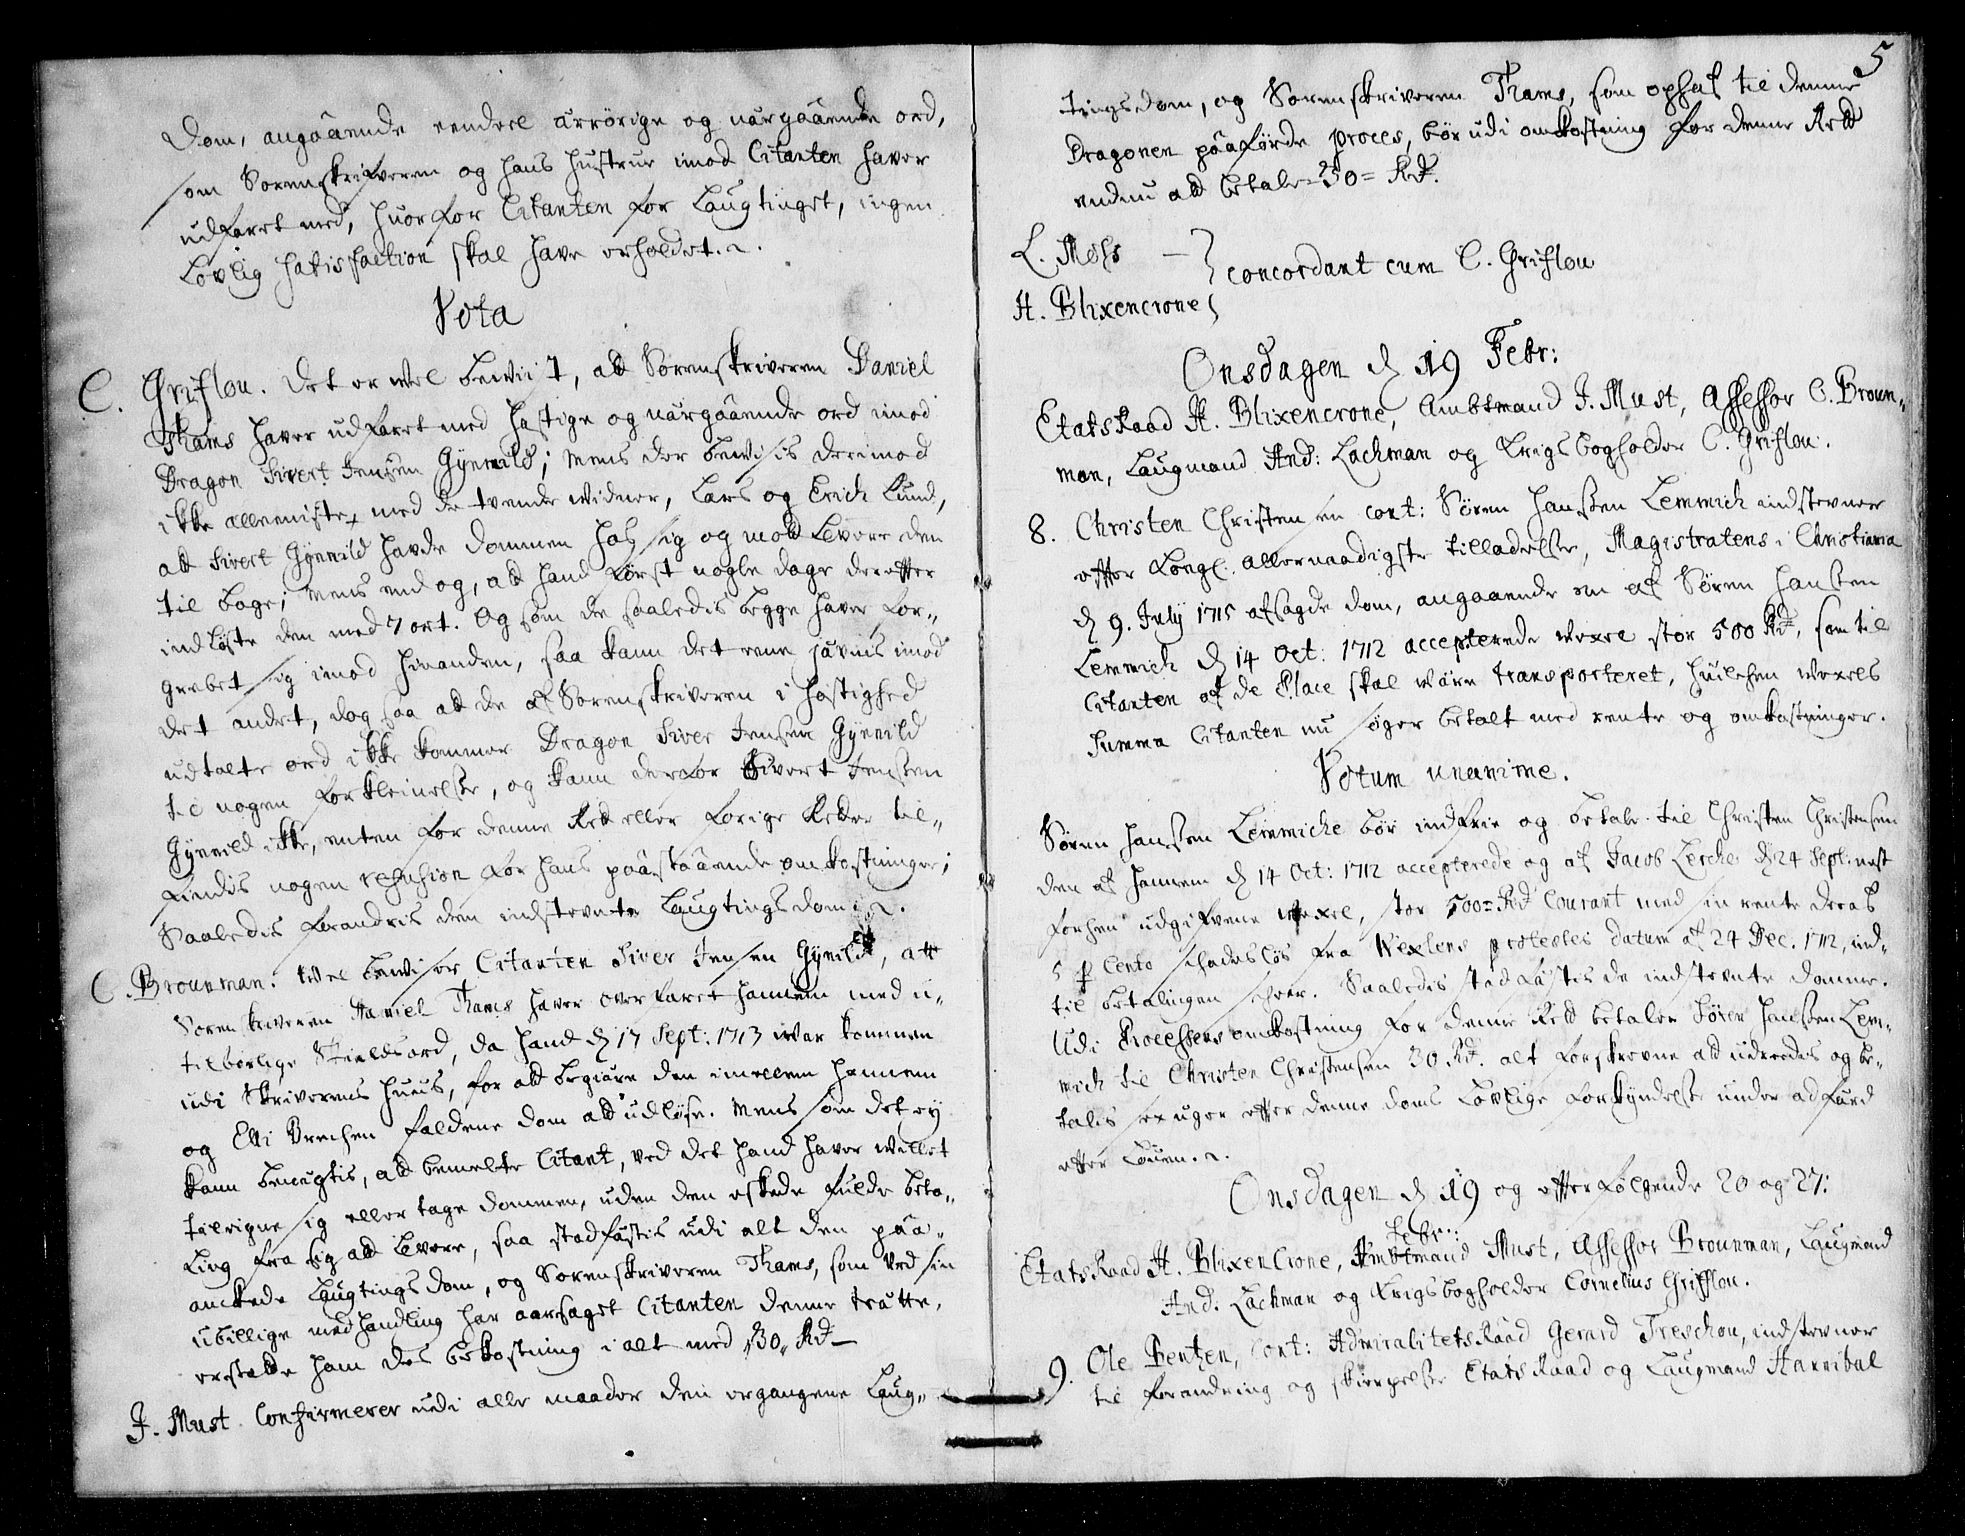 Dom, angaäende eendeel ärrörige og närgaäende ord,
som Sorenskrifveren og hans hustrue imod Citanten haver
udfaret med, huorfor Citanten for Laugtinget, ingen
Lovlig Satisfaction skal have erholdet.
Vota
C. Griflou. Det er wel bewiist, att Sorenskriveren Daniel
Thams haver udfaret med hastige og närgaäende ord imod
Dragon Sivert Jensen Gÿnvild; Mens der bewisis derimod
ikke alleeniste, med de tvende widner, Lars og Erich Lund,
att Sivert Gÿnvild hafde dommen hos sig og wolde levere den
til bage; mens end og, att hand först nogle dage derefter
indlöste den med 7 ort. Og som de saaledis begge haver for-
grebet sig imod hinanden, saa kand det eene hävnis imod
det andet, dog saa att de af Sorenskriveren i hastighed
udtalte ord ikke kommer Dragon Siver Jensen Gÿnvild
til nogen forkleinelse, og kand derfor Sivert Jensen
Gÿnvild ikke, enten for denne Rett eller forige Retter til-
findis nogen refusion for hans paästaäende omkostninger;
Saaledis forandris den indstevnte Laugtings dom.
C. Brounman. Wel bewiser Citanten Siver Jensen Gÿnild, att
Sorenskriveren Daniel Thams haver overfaret hannem med u-
tilbörlige Skieldsord, da hand d 17 Sept: 1713 war kommen
udi Skriverens huus, for att begiäre den imellem hannem
og Elli Brechen faldene dom att udlöse. Mens som det ey
kand benegtis, att bemelte Citant, ved det hand haver willet
tileigne sig eller tage dommen, uden den eskede fulde beta-
ling fra sig att levere, saa stadfästis udi alt den paä-
anckede Laugtings dom, og Sorenskriveren Thams, som ved sin
ubillige medhandling har aarsaget Citanten denne trätte,
erstatte ham des bekostning i alt med 30 Rdr
J. Must. Confirmerer udi alle maader den ergangene Laug-
5
tingsdom, og Sorenskriveren Thams, som ophaf til denne
Dragonen paäförde proces, bör udi omkostning for denne Rett
endnu att betale 30 Rdr.
L. Mohs
H. Blixencrone
concordant cum C. Griflou
Onsdagen d 19 Febr:
Etats Raad H. Blixencrone, Ambtmand J. Must, Assessor C. Broun-
man, Laugmand And: Lachman og Krigsbogholder C. Griflou.
8. Christen Christensen cont: Sören Hanssen Lemmich indstevner
efter Kongl: allernaadigste tilladelse, Magistratens i Christiania
d 9. July 1715 afsagde dom, angaaende en af Sören Hanssen
Lemmich d 14 Oct: 1712 accepterede wexel stor 500 Rdr, som til
Citanten af de Place skal wäre transporteret, huilchen wexels
Summa Citanten nu söger betalt med rente og omkostninger.
Votum unanime.
Sören Hanssen Lemmiche bör indfrie og betale til Christen Christensen
den af hannem d 14 Oct: 1712 accepterede og af Jacob Lerche d 24 Sept: nest
forhen udgifvene wexel, stor 500 Rdr Courant med sin rente deraf
5 p Cento skadeslös fra Wexlens protestes datum af 24 Dec. 1712, ind-
til betalingen skeer. Saaledis stadfästis de indstevnte domme.
Udi Processens omkostning for denne Rett betaler Sören Hanssen Lem-
mich til Christen Christensen 30 Rdr. alt forskrevne att udreedis og be-
talis sex uger efter denne doms lovlige forkyndelse under adfärd
efter Loven.
Onsdagen d 19 og efterfölgende 20 og 27:
Febr::
Etats Raad H. Blixencrone, Ambtmand Must, Assessor Brounman, Laugmand
And. Lachman og Krigsbogholder Cornelius Grifflou.
9. Ole Bentzen, Cont: Admiralitets Raad Gerard Treschou, indstevner
til forandring og skierpelse Etats Raad og Laugmand Hannibal